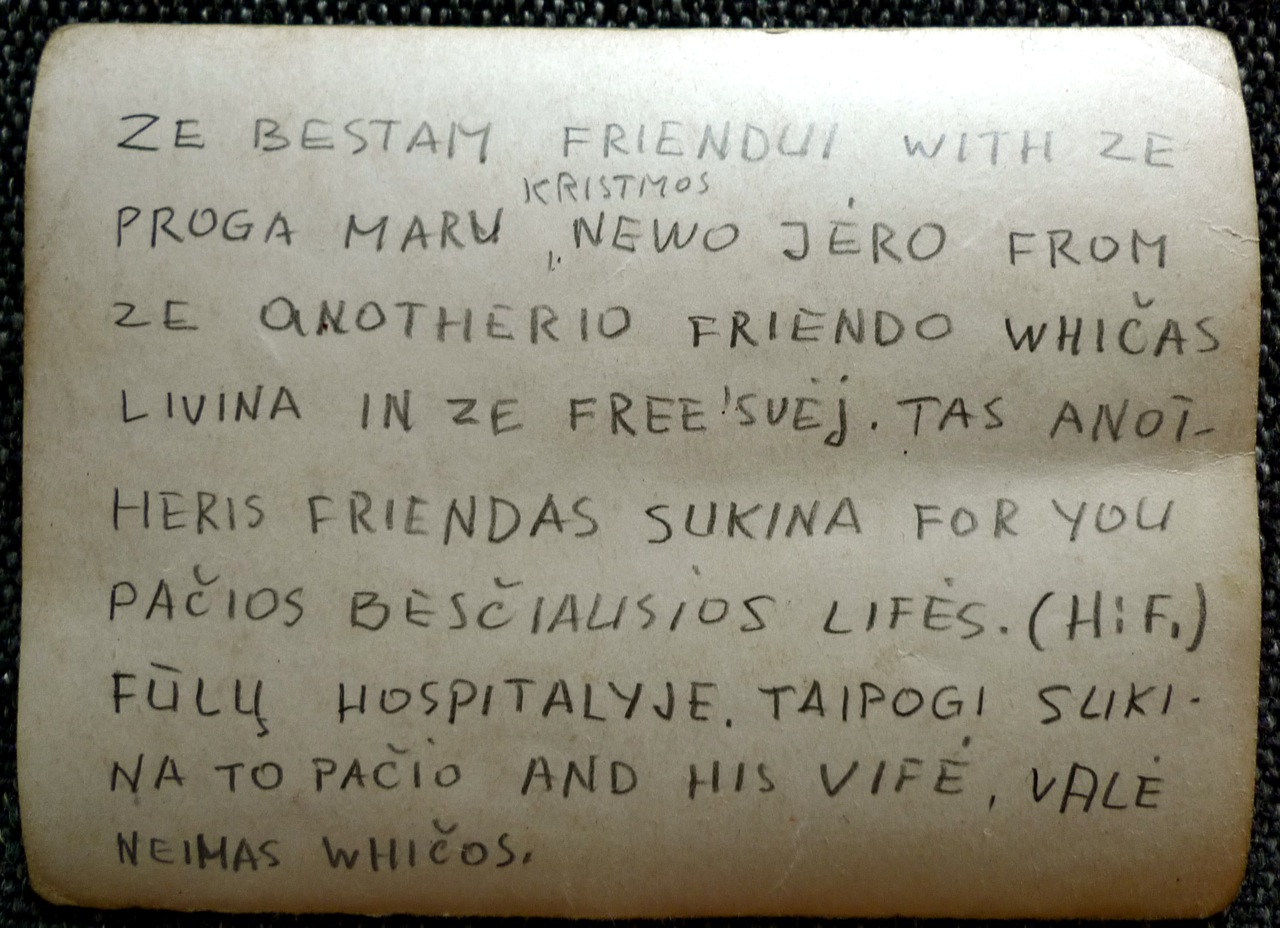 ZE BESTAM FRIENDUI WITH ZE
KRISTMOS
PROGA MARU , NEWO JĖRO FROM
ZE ANOTHERIO FRIENDO WHIČAS
LIVINA IN ZE FREE'SVĖJ. TAS ANOT-
HERIS FRIENDAS SUKINA FOR YOU
PAČIOS BESČIAUSIOS LIFĖS. (H:F.)
FŪLŲ HOSPITALYJE. TAIPOGI SUKI-
NA TO PAČIO AND HIS VIFĖ, VALĖ
NEIMAS WHIČOS.